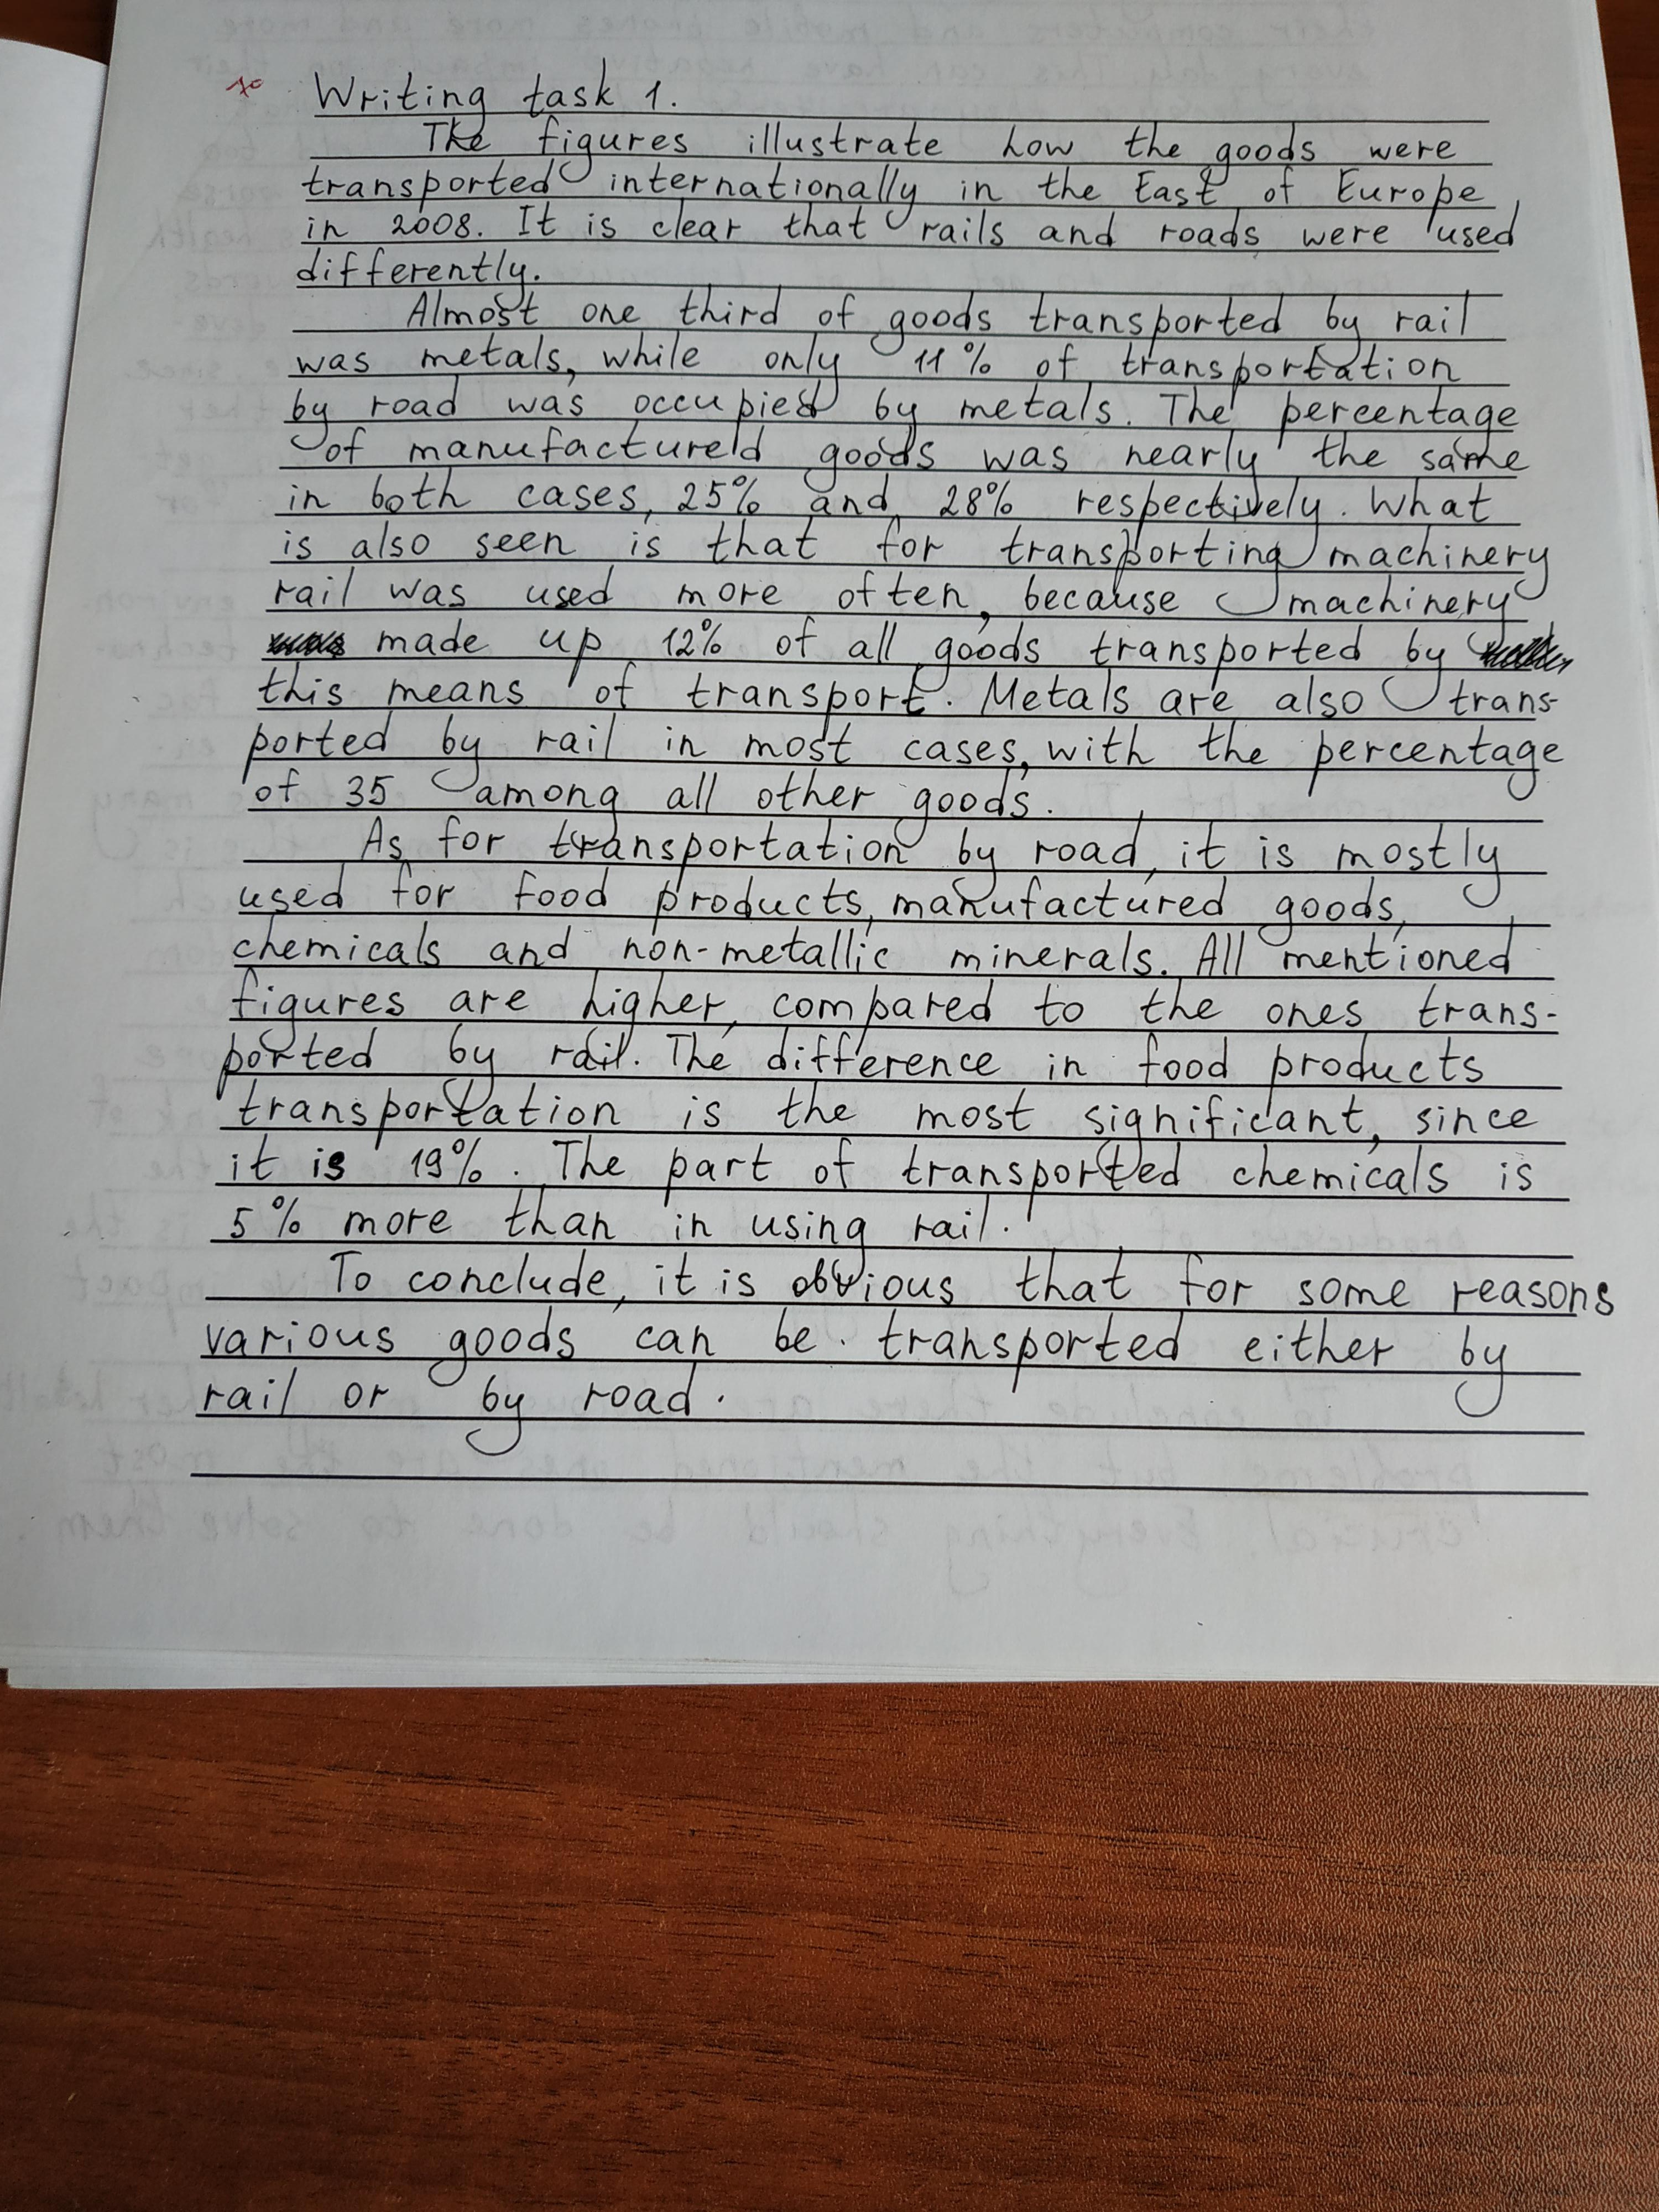 Writing task 1.
The figures illustrate how the goods were
transported internationally in the East of Europe
in 2008. It is clear that rails and roads were used
differently.
Almost one third of goods transported by rail
was metals, while only 11% of transportation
by road was occupied by metals. The percentage
of manufactured goods was nearly the same
in both cases, 25% and 28% respectively. What
is also seen is that for transporting machinery
rail was used more often, because machinery
made up 12% of all goods transported by
this means of transport. Metals are also trans-
ported by rail in most cases, with the percentage
of 35 among all other goods.
As for transportation by road, it is mostly
used for food products, manufactured goods,
chemicals and non-metallic minerals. All mentioned
figures are higher, compared to the ones trans-
ported by rail. The difference in food products
transportation is the most significant, since
it is 19%. The part of transported chemicals is
5% more than in using rail.
To conclude, it is obvious that for some reasons
various goods can be transported either by
rail or by road.